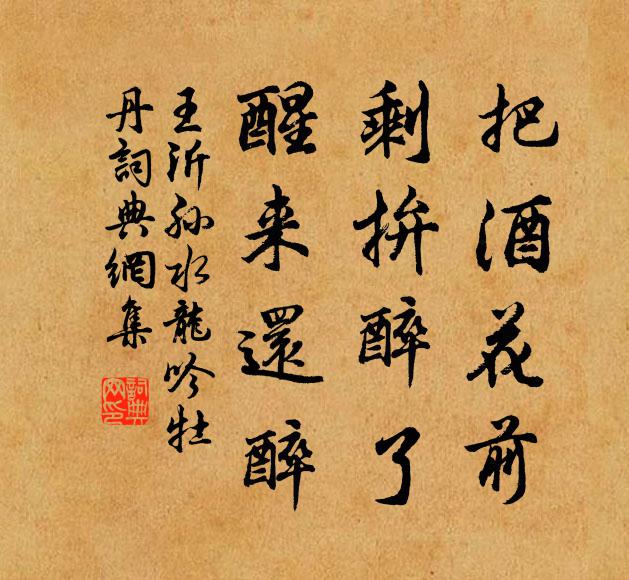 把酒花前
剩拚醉了
醒来還醉
王沂孫水龍吟牡
丹詞典網集
詞典
网印